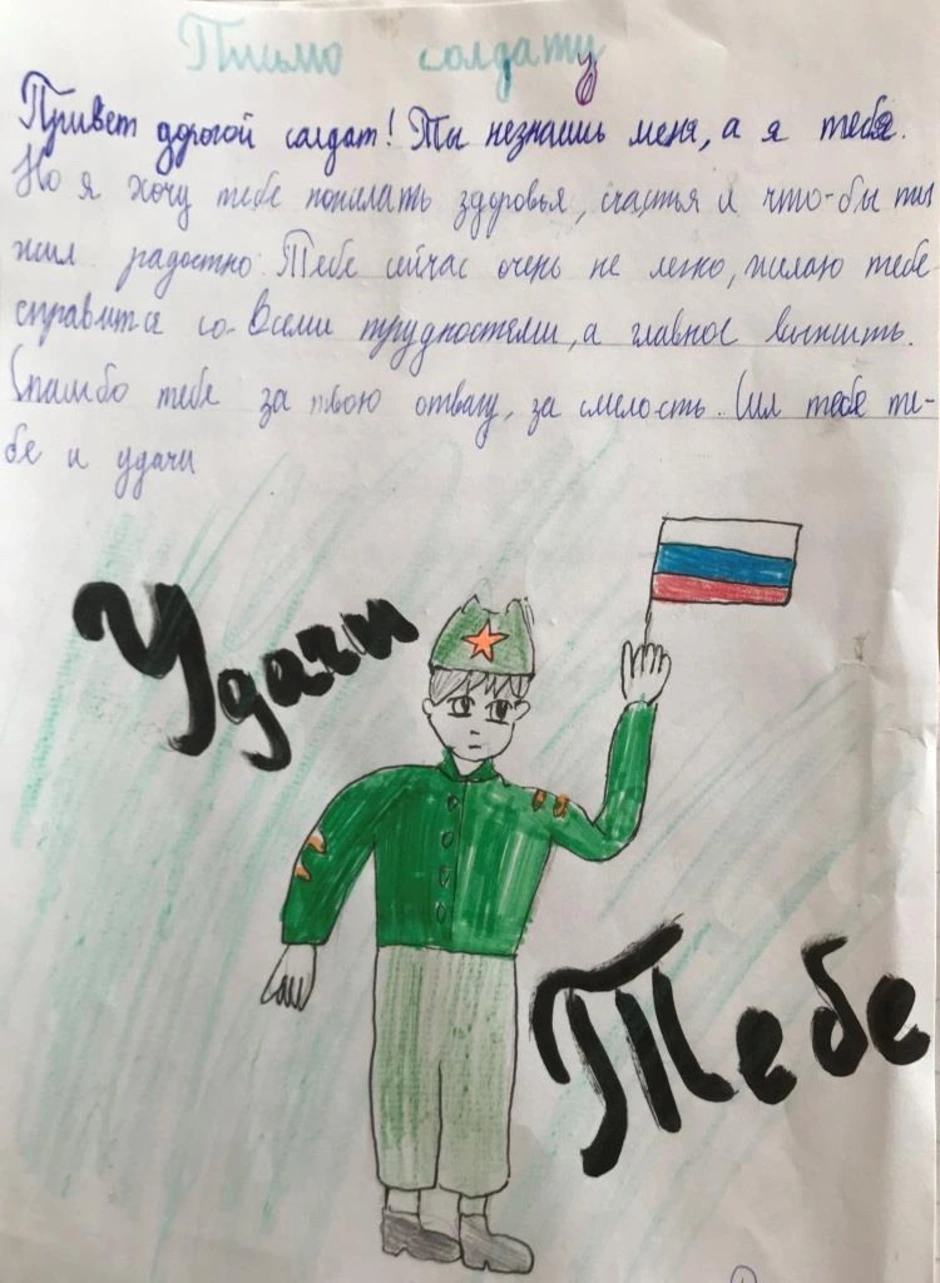 Письмо солдату
Привет дорогой солдат! Ты незнаешь меня, а я тебя.
Но я хочу тебе пожелать здоровья, счастья и что-бы ты
жил радостно. Тебе сейчас очень не легко, желаю тебе
справится со-всеми трудностями, а главное выжить.
Спасибо тебе за твою отвагу, за смелость. Сил тебе те-
бе и удачи
Удачи
Тебе